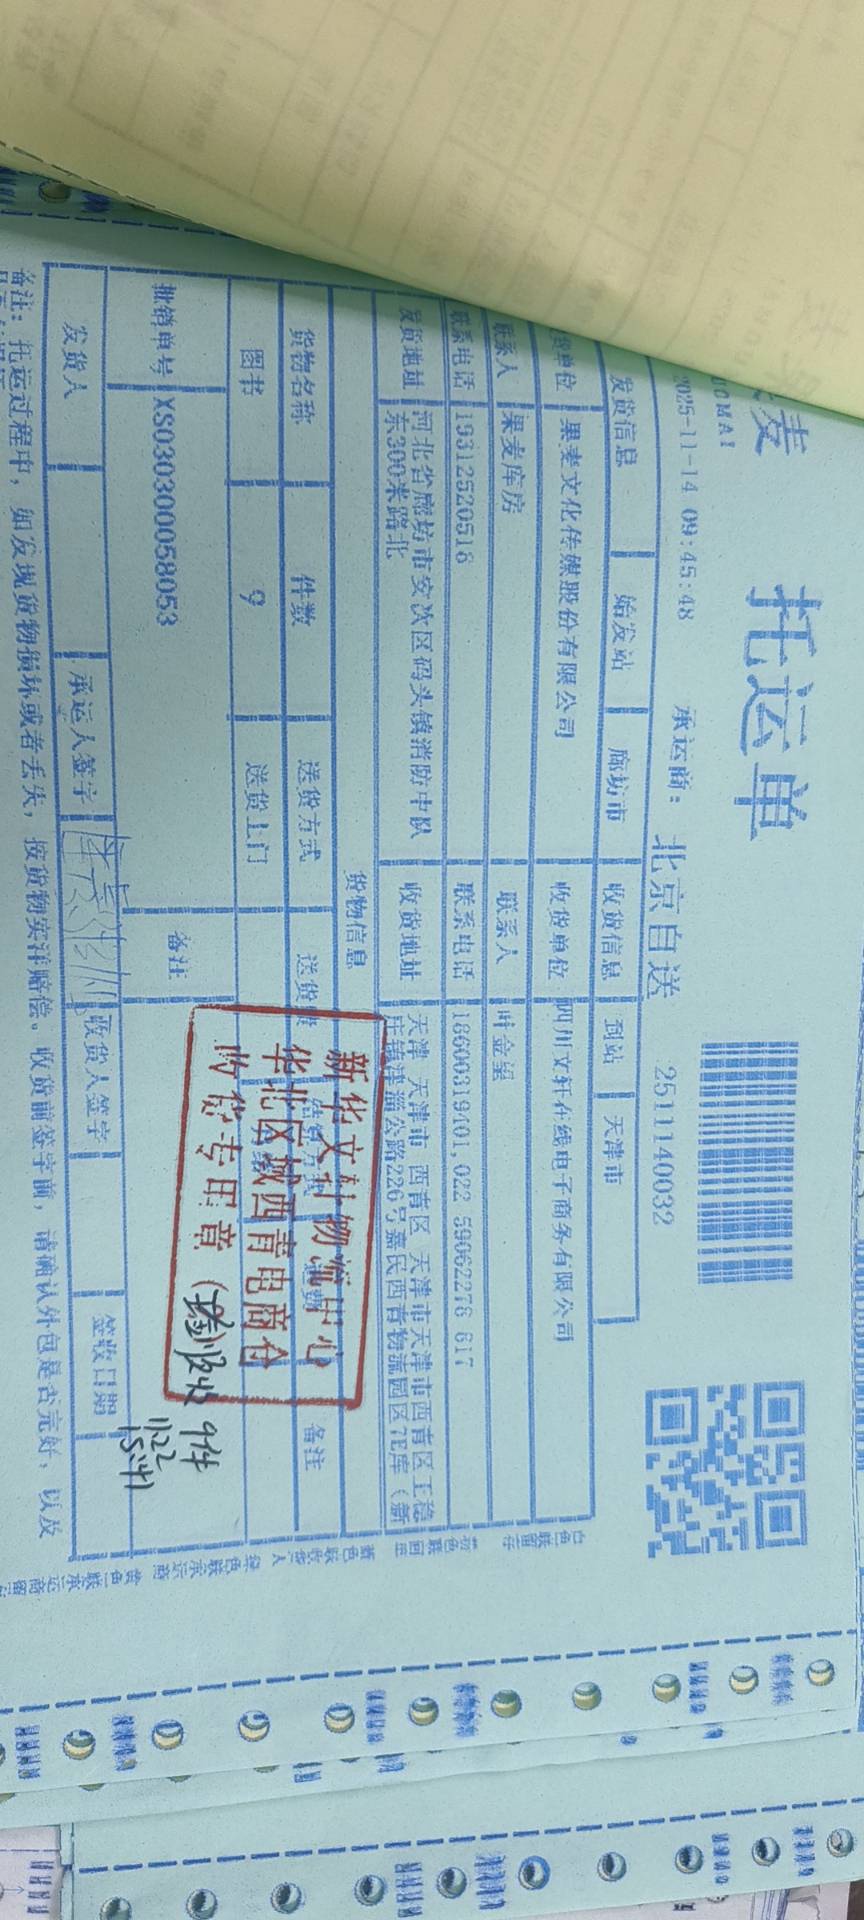 麦
托运单
2025-11-14 09:45:48 承运商: 北京自送 2511140032
发货信息 始发站 廊坊市 收货信息 到站 天津市
货单位 果麦文化传媒股份有限公司 收货单位 四川文轩在线电子商务有限公司
联系人 果麦库房 联系人 叶金星
联系电话 19312520516 联系电话 18600319101,022 59062276 617
发货地址 河北省廊坊市安次区码头镇消防中队东300米路北 收货地址 天津 天津市 西青区 天津市天津市西青区王稳庄镇津淄公路226号嘉民西青物流园区7E库(新
货物信息
货物名称 件数 送货方式 备注
图书 9 送货上门
批销单号 XS030300058053 备注
发货人 承运人签字 收货人签字 签收日期
备注: 托运过程中, 如发现货物损坏或者丢失, 按货物实洋赔偿、收货前签字前, 请确认外包是否完好, 以及
新华文轩物流中心
华北区域西青电商仓
收货专用章
9件
11.22
15:41